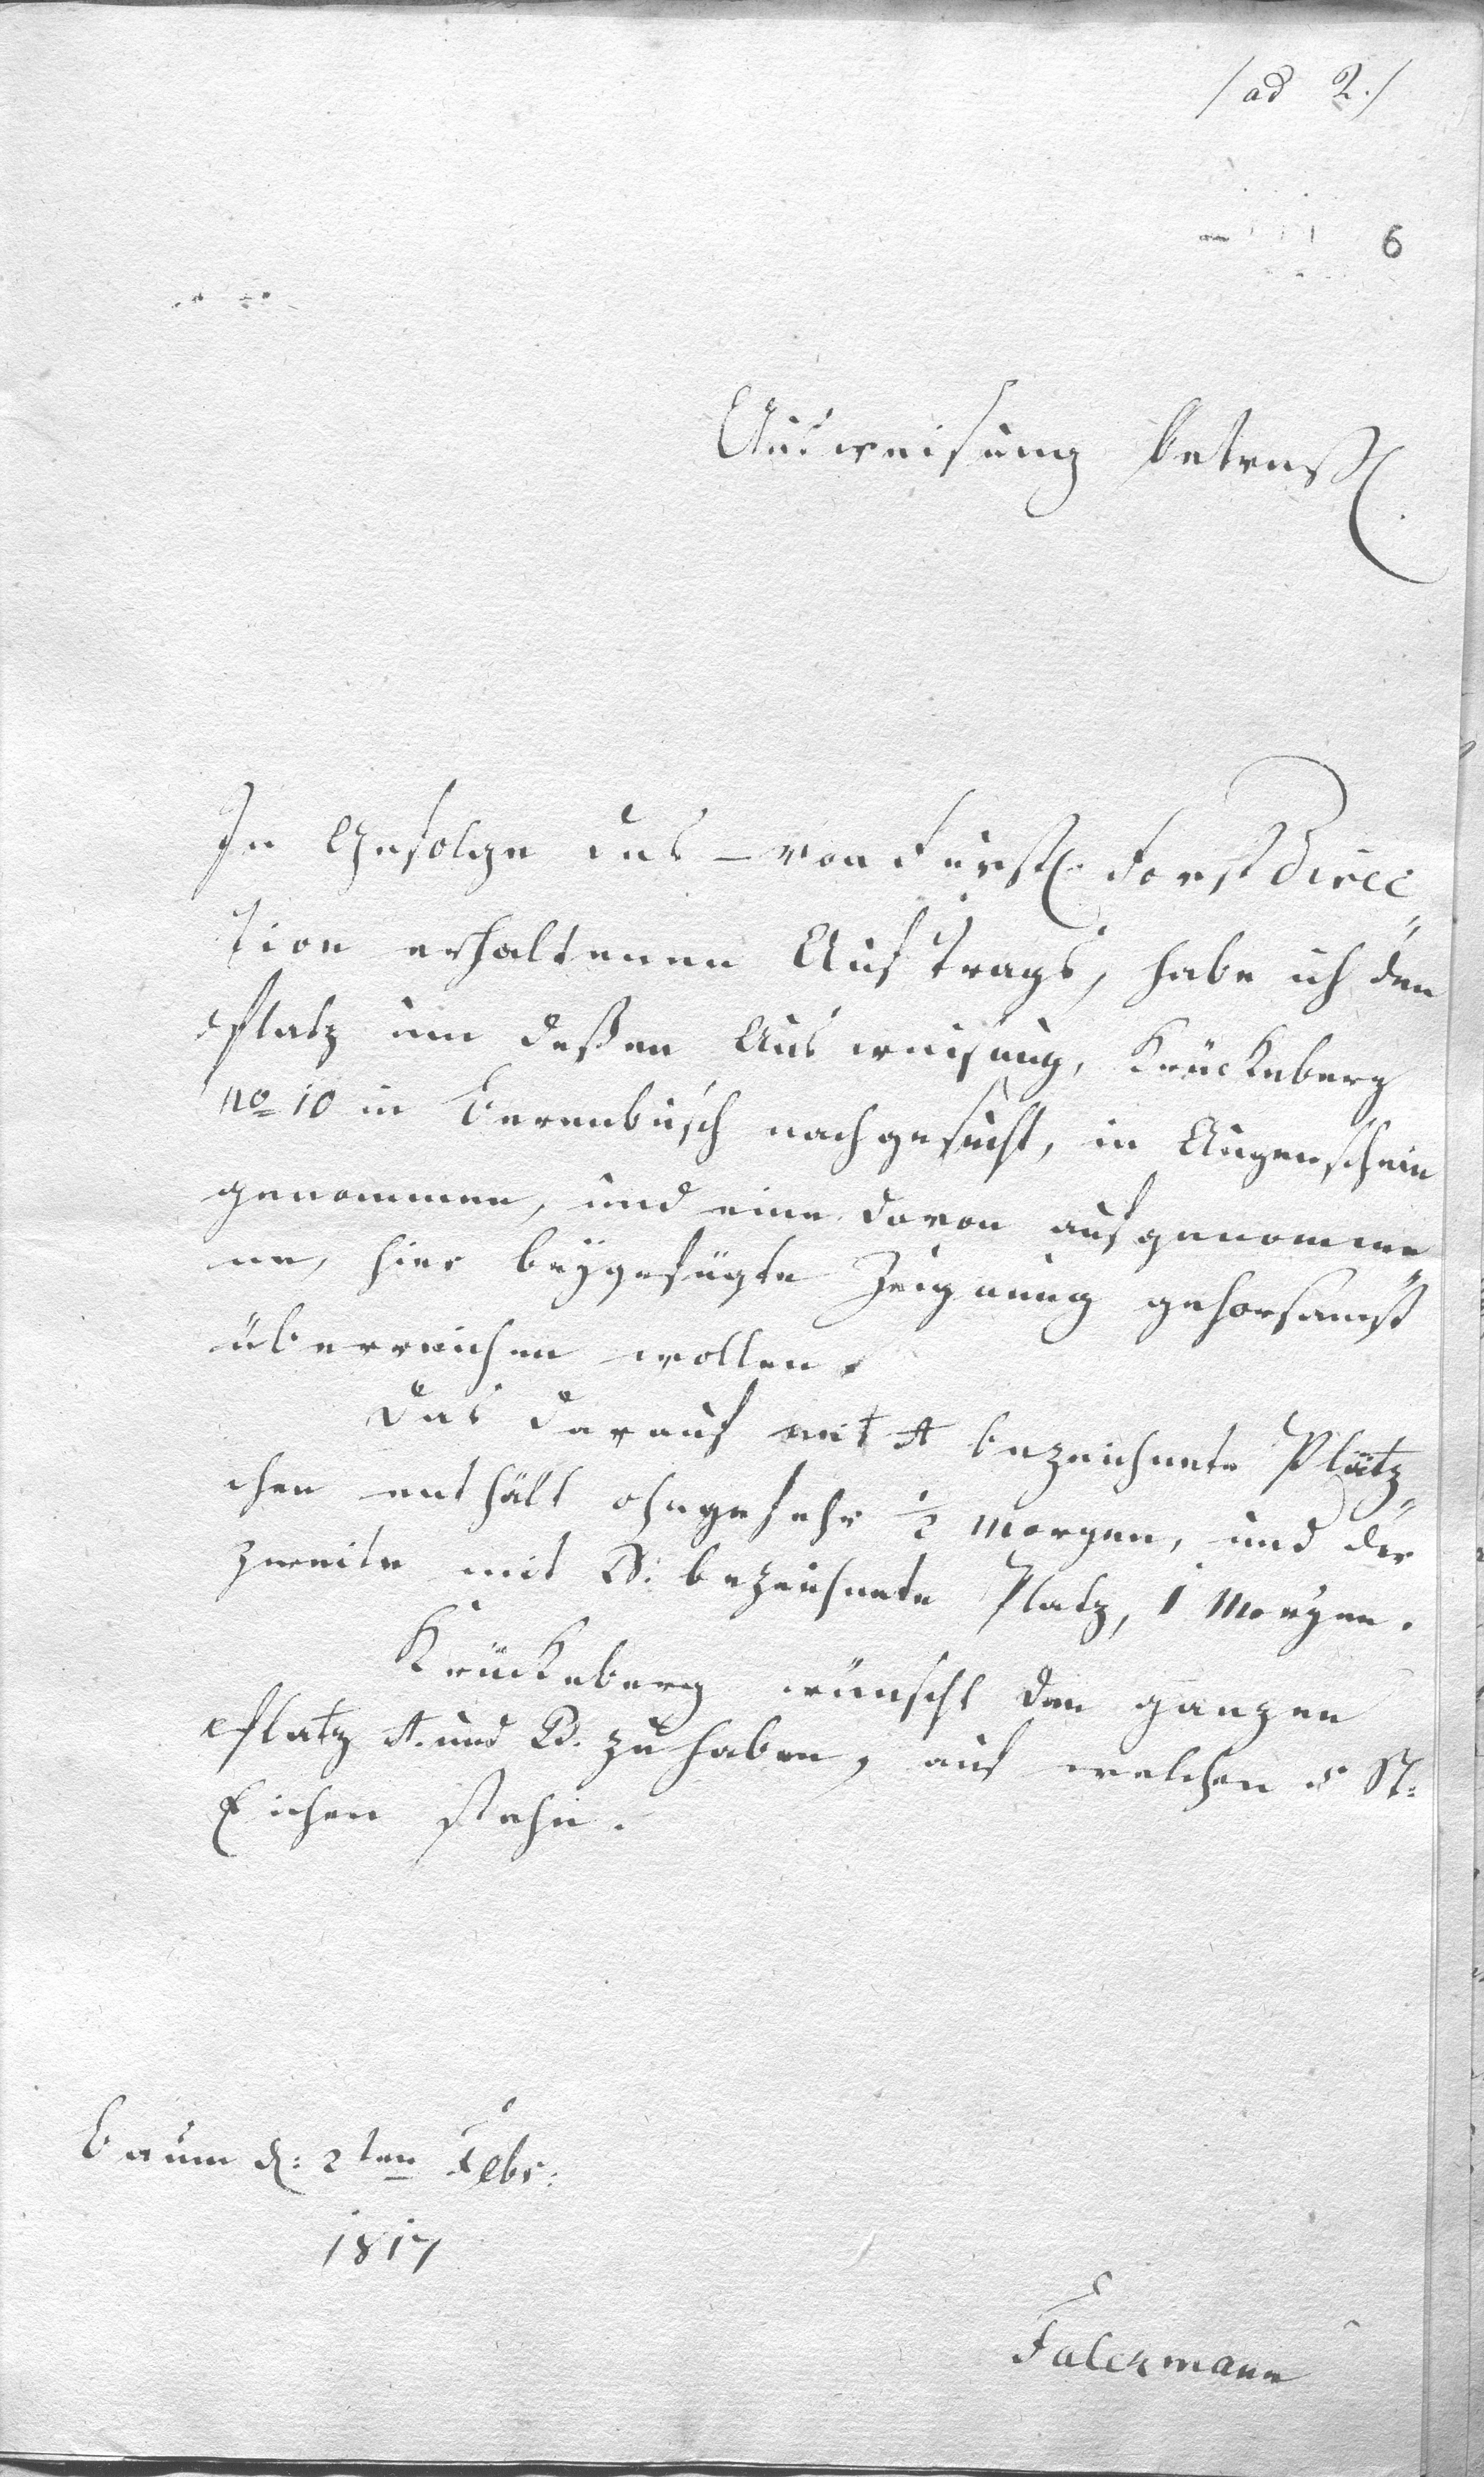 /ad 2./
6
Ausweisung betreff.
In Gefolge des – von Fürstl. Forst Direc„
tion erhaltenen Auftrags, habe ich den
Platz um deßen Ausweisung, Krückeberg
no 10 in Berenbusch nachgesucht, in Augenschein
genommen, und eine davon aufgenomme„
ne, hier beÿgefügte Zeignung gehorsamst
überreichen wollen.
Das darauf mit A bezeichnete Plätz„
chen enthält ohngefehr ½ Morgen, und der
zweite mit B: bezeichnete Platz, 1 Morgen.
Krückeberg wünscht den ganzen
Platz A. und B. zu haben, auf welchen 5 St:
Eichen stehn.
Baum d: 2ten Febr:
1817
Falckmann